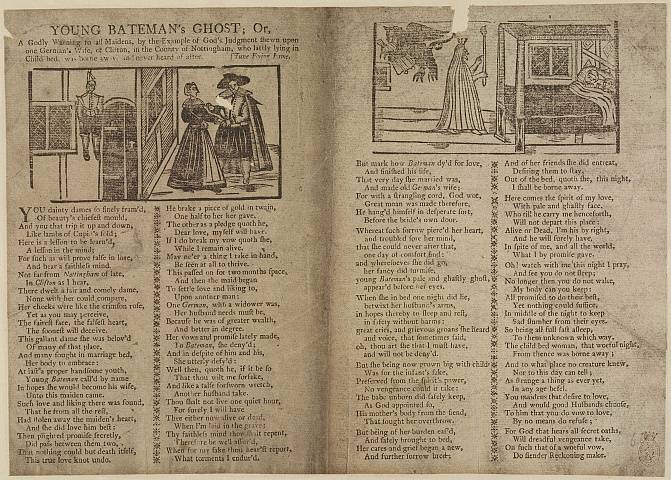 YOUNG BATEMAN's GHOST; Or,
A Godly Warning to all Maidens, by the Example of God's Judgment shewn upon
one German's Wife, of Clifton, in the County of Nottingham, who lastly lying in
Child-bed, was borne away, and never heard of after.
YOU dainty dames so finely fram'd,
Of beauty's chiefest mould,
And you that trip it up and down,
Like lambs of Cupid's fold;
Here is a lesson to be learn'd,
A lesson in the mind;
For such as will prove false in love,
And bear a faithless mind.
Not far from Nottingham of late,
In Clifton as I hear,
There dwelt a fair and comely dame,
None with her could compare,
Her cheeks were like the crimson rose,
Yet as you may perceive,
The fairest face, the falsest heart,
The soonest will deceive.
This gallant dame she was belov'd
Of many of that place,
And many sought in marriage bed,
Her body to embrace:
At last a proper handsome youth,
Young Bateman call'd by name
In hopes she would become his wife,
Unto this maiden came.
Such love and liking there was found,
That he from all the rest,
Had stolen away the maiden's heart,
And she did love him best:
Then plighted promise secretly,
Did pass between them two,
That nothing could but death itself,
This true love knot undo.
He brake a piece of gold in twain,
One half to her her gave,
The other as a pledge quoth he,
Dear love, myself will have.
If I do break my vow quoth she,
While I remain alive,
May ne'er a thing I take in hand,
Be seen at all to thrive.
This passed on for two months space,
And then the maid began
To settle love and liking to,
Upon another man:
One German, with a widower was,
Her husband needs must be,
Because he was of greater wealth,
And better in degree.
Her vows and promise lately made,
To Bateman, she deny'd;
And in despite of him and his,
She utterly defy'd:
Well then, quoth he, if it be so
That thou wilt me forsake,
And like a false forsworn wretch,
Another husband take.
Thou shalt not live one quiet hour,
For surely I will have
Thee either now alive or dead,
When I'm laid in the grave:
Thy faithless mind thou shalt repent,
Therefore be well assur'd,
When for my sake thou hear'st report,
What torments I endur'd.
But mark how Bateman dy'd for love,
And finished his life,
That very day she married was,
And made old German's wife;
For with a strangling cord, God wot,
Great moan was made therefore,
He hang'd himself in desperate sort,
Before the bride's own door.
Whereat such sorrow pierc'd her heart,
and troubled sore her mind,
that she could never after that,
one day of comfort find:
and wheresoever she did go,
her fancy did surmise,
young Bateman's pale and ghastly ghost,
appear'd before her eyes.
When she in bed one night did lie,
betwixt her husband's arms,
in hopes thereby to sleep and rest,
in safety without harms:
great cries, and grievous groans she heard
and voice, that sometimes said,
oh, thou art she that I must have,
and will not be deny'd.
But she being now grown big with child
Was for the infant's sake,
Preserved from the spirit's power,
No vengeance could it take:
The babe unborn did safely keep,
As God appointed so,
His mother's body from the fiend,
That sought her overthrow.
But being of her burden eas'd,
And safely brought to bed,
Her cares and grief began a new,
And further sorrow bred:
And of her friends she did entreat,
Desiring them to stay,
Out of the bed, quoth she, this night,
I shall be borne away.
Here comes the spirit of my love,
With pale and ghastly face,
Who till he carry me henceforth,
Will not depart this place:
Alive or Dead, I'm his by right,
And he will surely have,
In spite of me, and all the world,
What I by promise gave.
Oh! watch with me this night I pray,
And see you do not sleep;
No longer then you do not wake,
My body can you keep:
All promised to do their best,
Yet nothing could suffice,
In middle of the night to keep
Sad slumber from their eyes.
So being all full fast asleep,
To them unknown which way,
The child bed woman, that woeful night,
From thence was borne away;
And to what place no creature knew,
Nor to this day can tell;
As strange a thing as ever yet,
In any age befel.
You maidens that desire to love,
And would good Husbands choose,
To him that you do vow to love,
By no means do refuse;
For God that hears all secret oaths,
Will dreadful vengeance take,
On such that of a woeful vow,
Do slender Reckoning make.